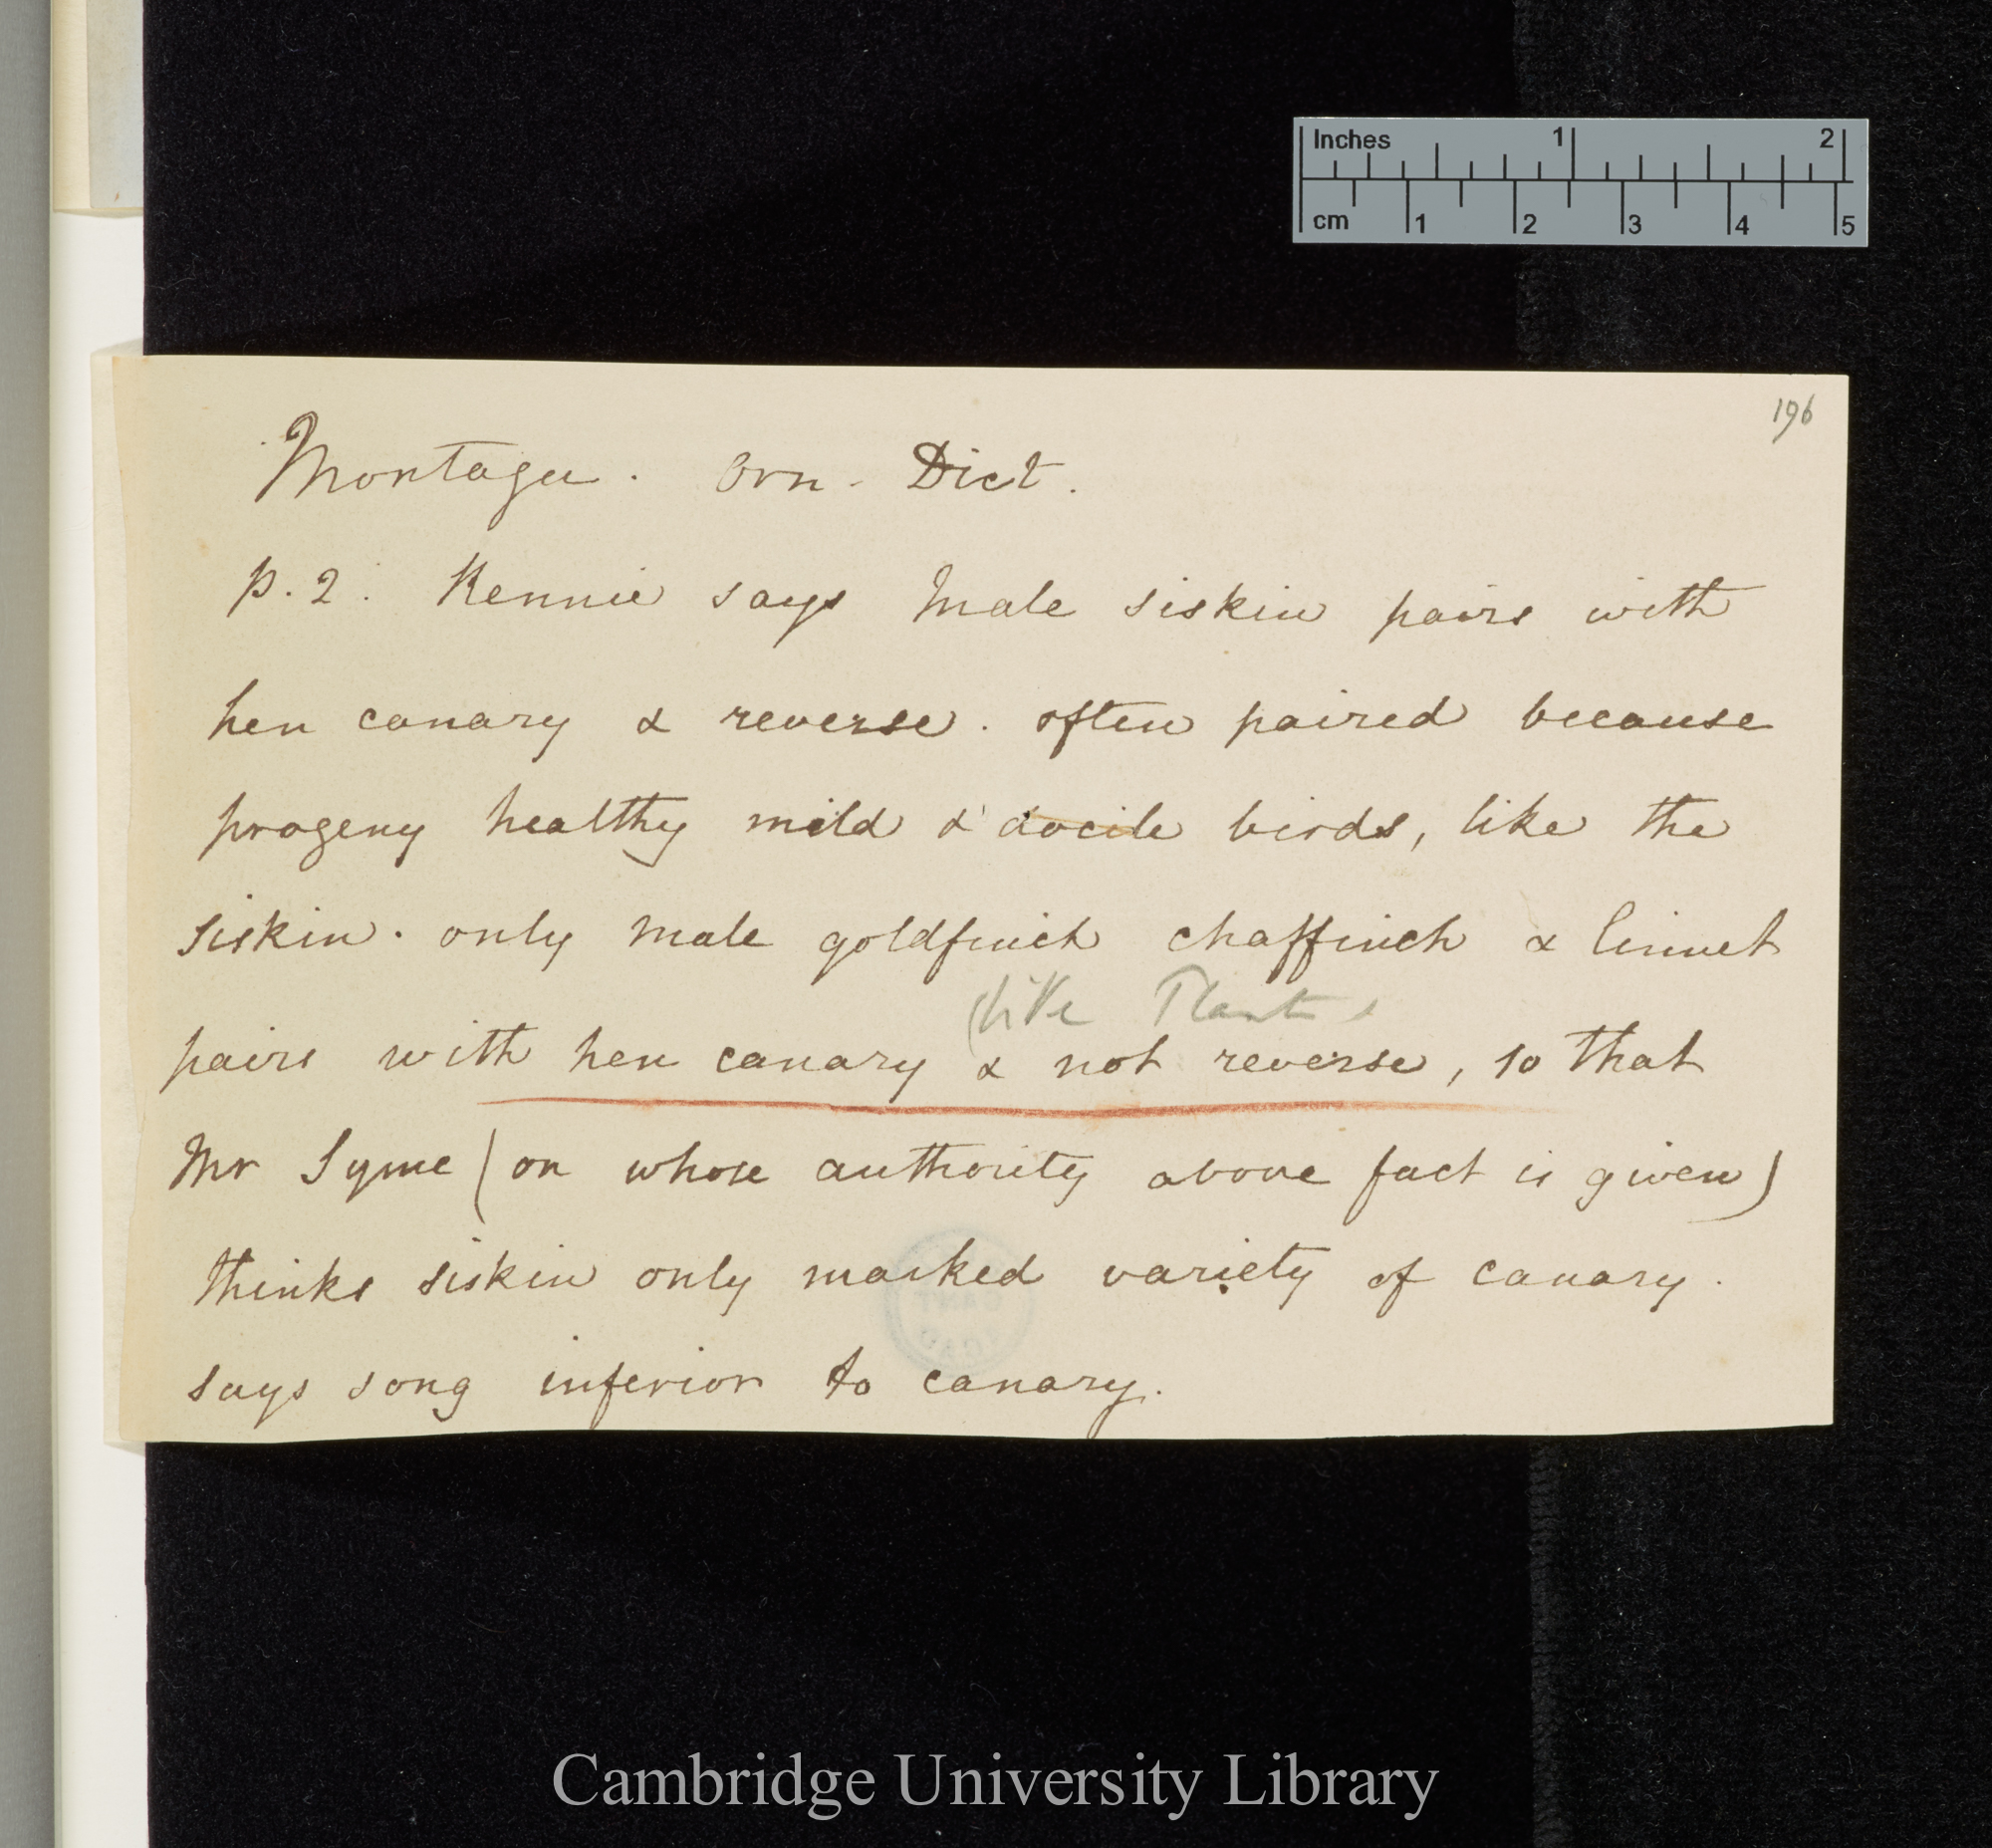 Inches 1 2
cm 1 2 3 4 5
196
Montagu. Orn. Dict.
p. 2. Rennie says Male siskin pairs with
hen canary & reverse. often paired because
progeny healthy mild & docile birds, like the
siskin. only male goldfinch chaffinch & linnet
(like Plants
pairs with hen canary & not reverse, so that
Mr Syme (on whose authority above fact is given)
thinks siskin only marked variety of canary.
says song inferior to canary.
Cambridge University Library